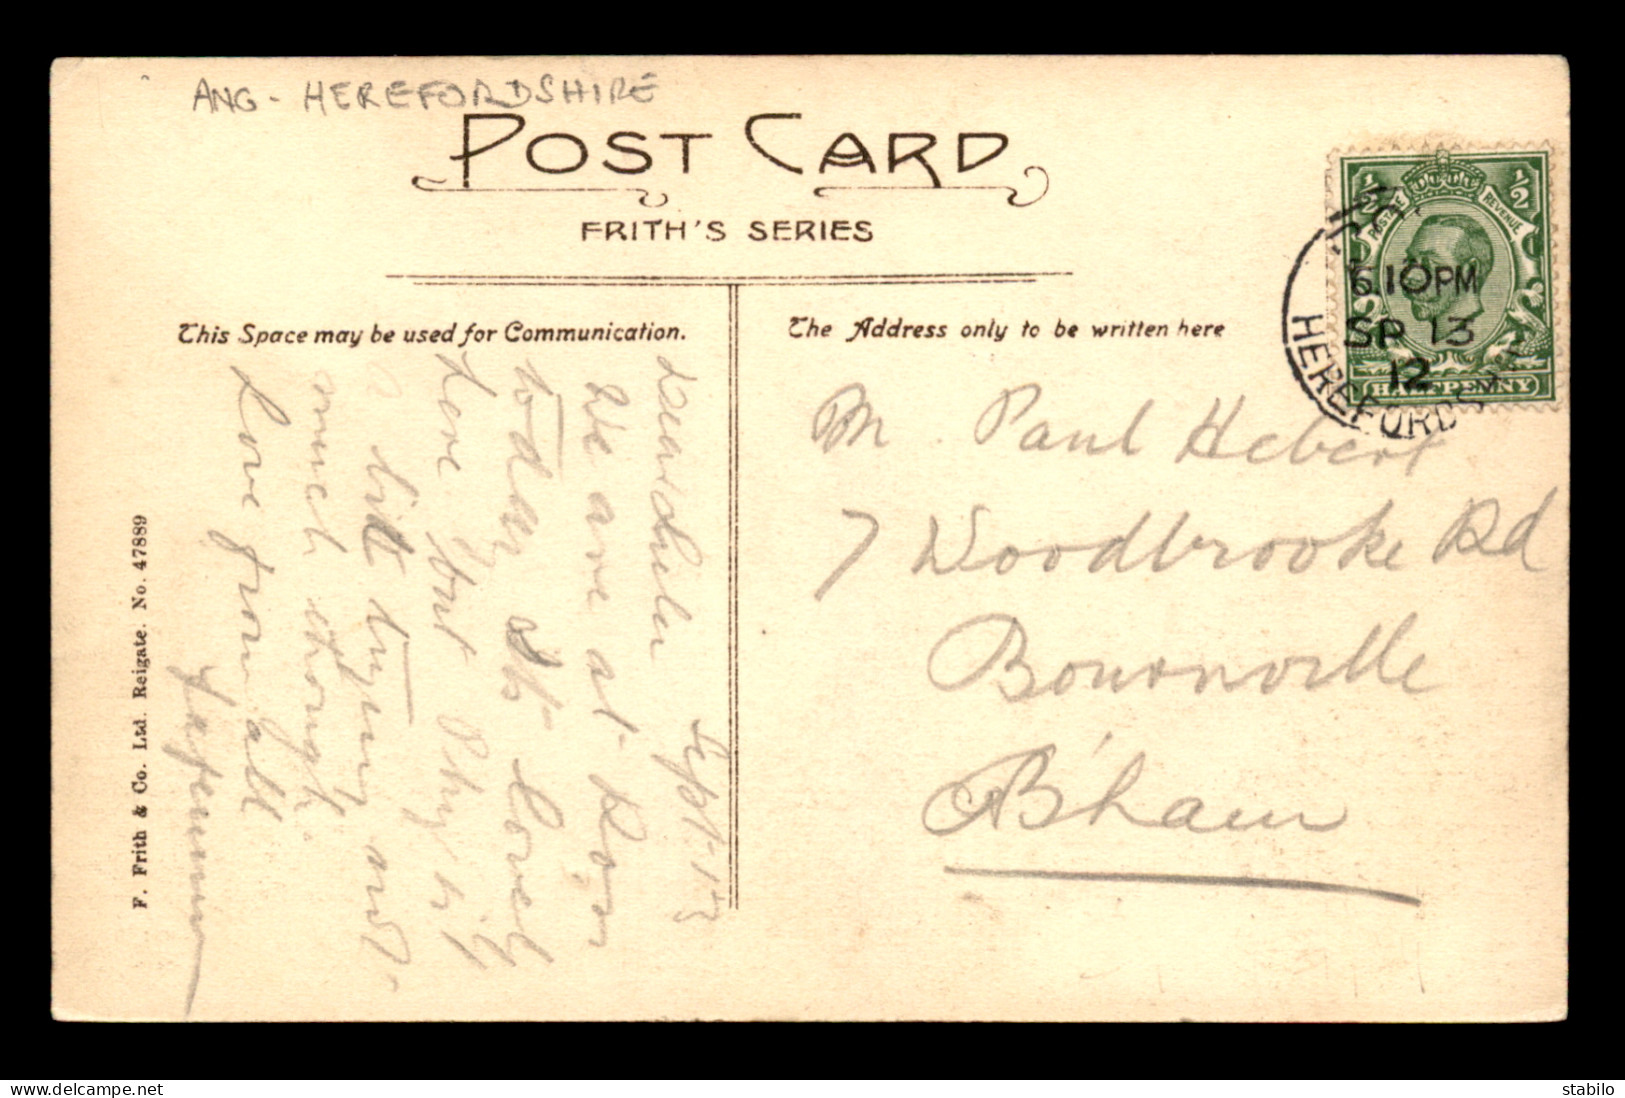 ANG - HEREFORDSHIRE
POST CARD
FRITH'S SERIES
This Space may be used for Communication.
The Address only to be written here
Sept 13
We are at Ross
today. It's lovely
here but Phiz is
a little trying not
much though.
Love from all
F. Frith & Co. Ltd. Reigate. No. 47889
M. Paul Hebert
7 Woodbrooke Rd
Bournville
B'ham
½ ½
POSTAGE REVENUE
HALFPENNY
6.10PM
SP 13
12
HEREFORDSHIRE
stabilo